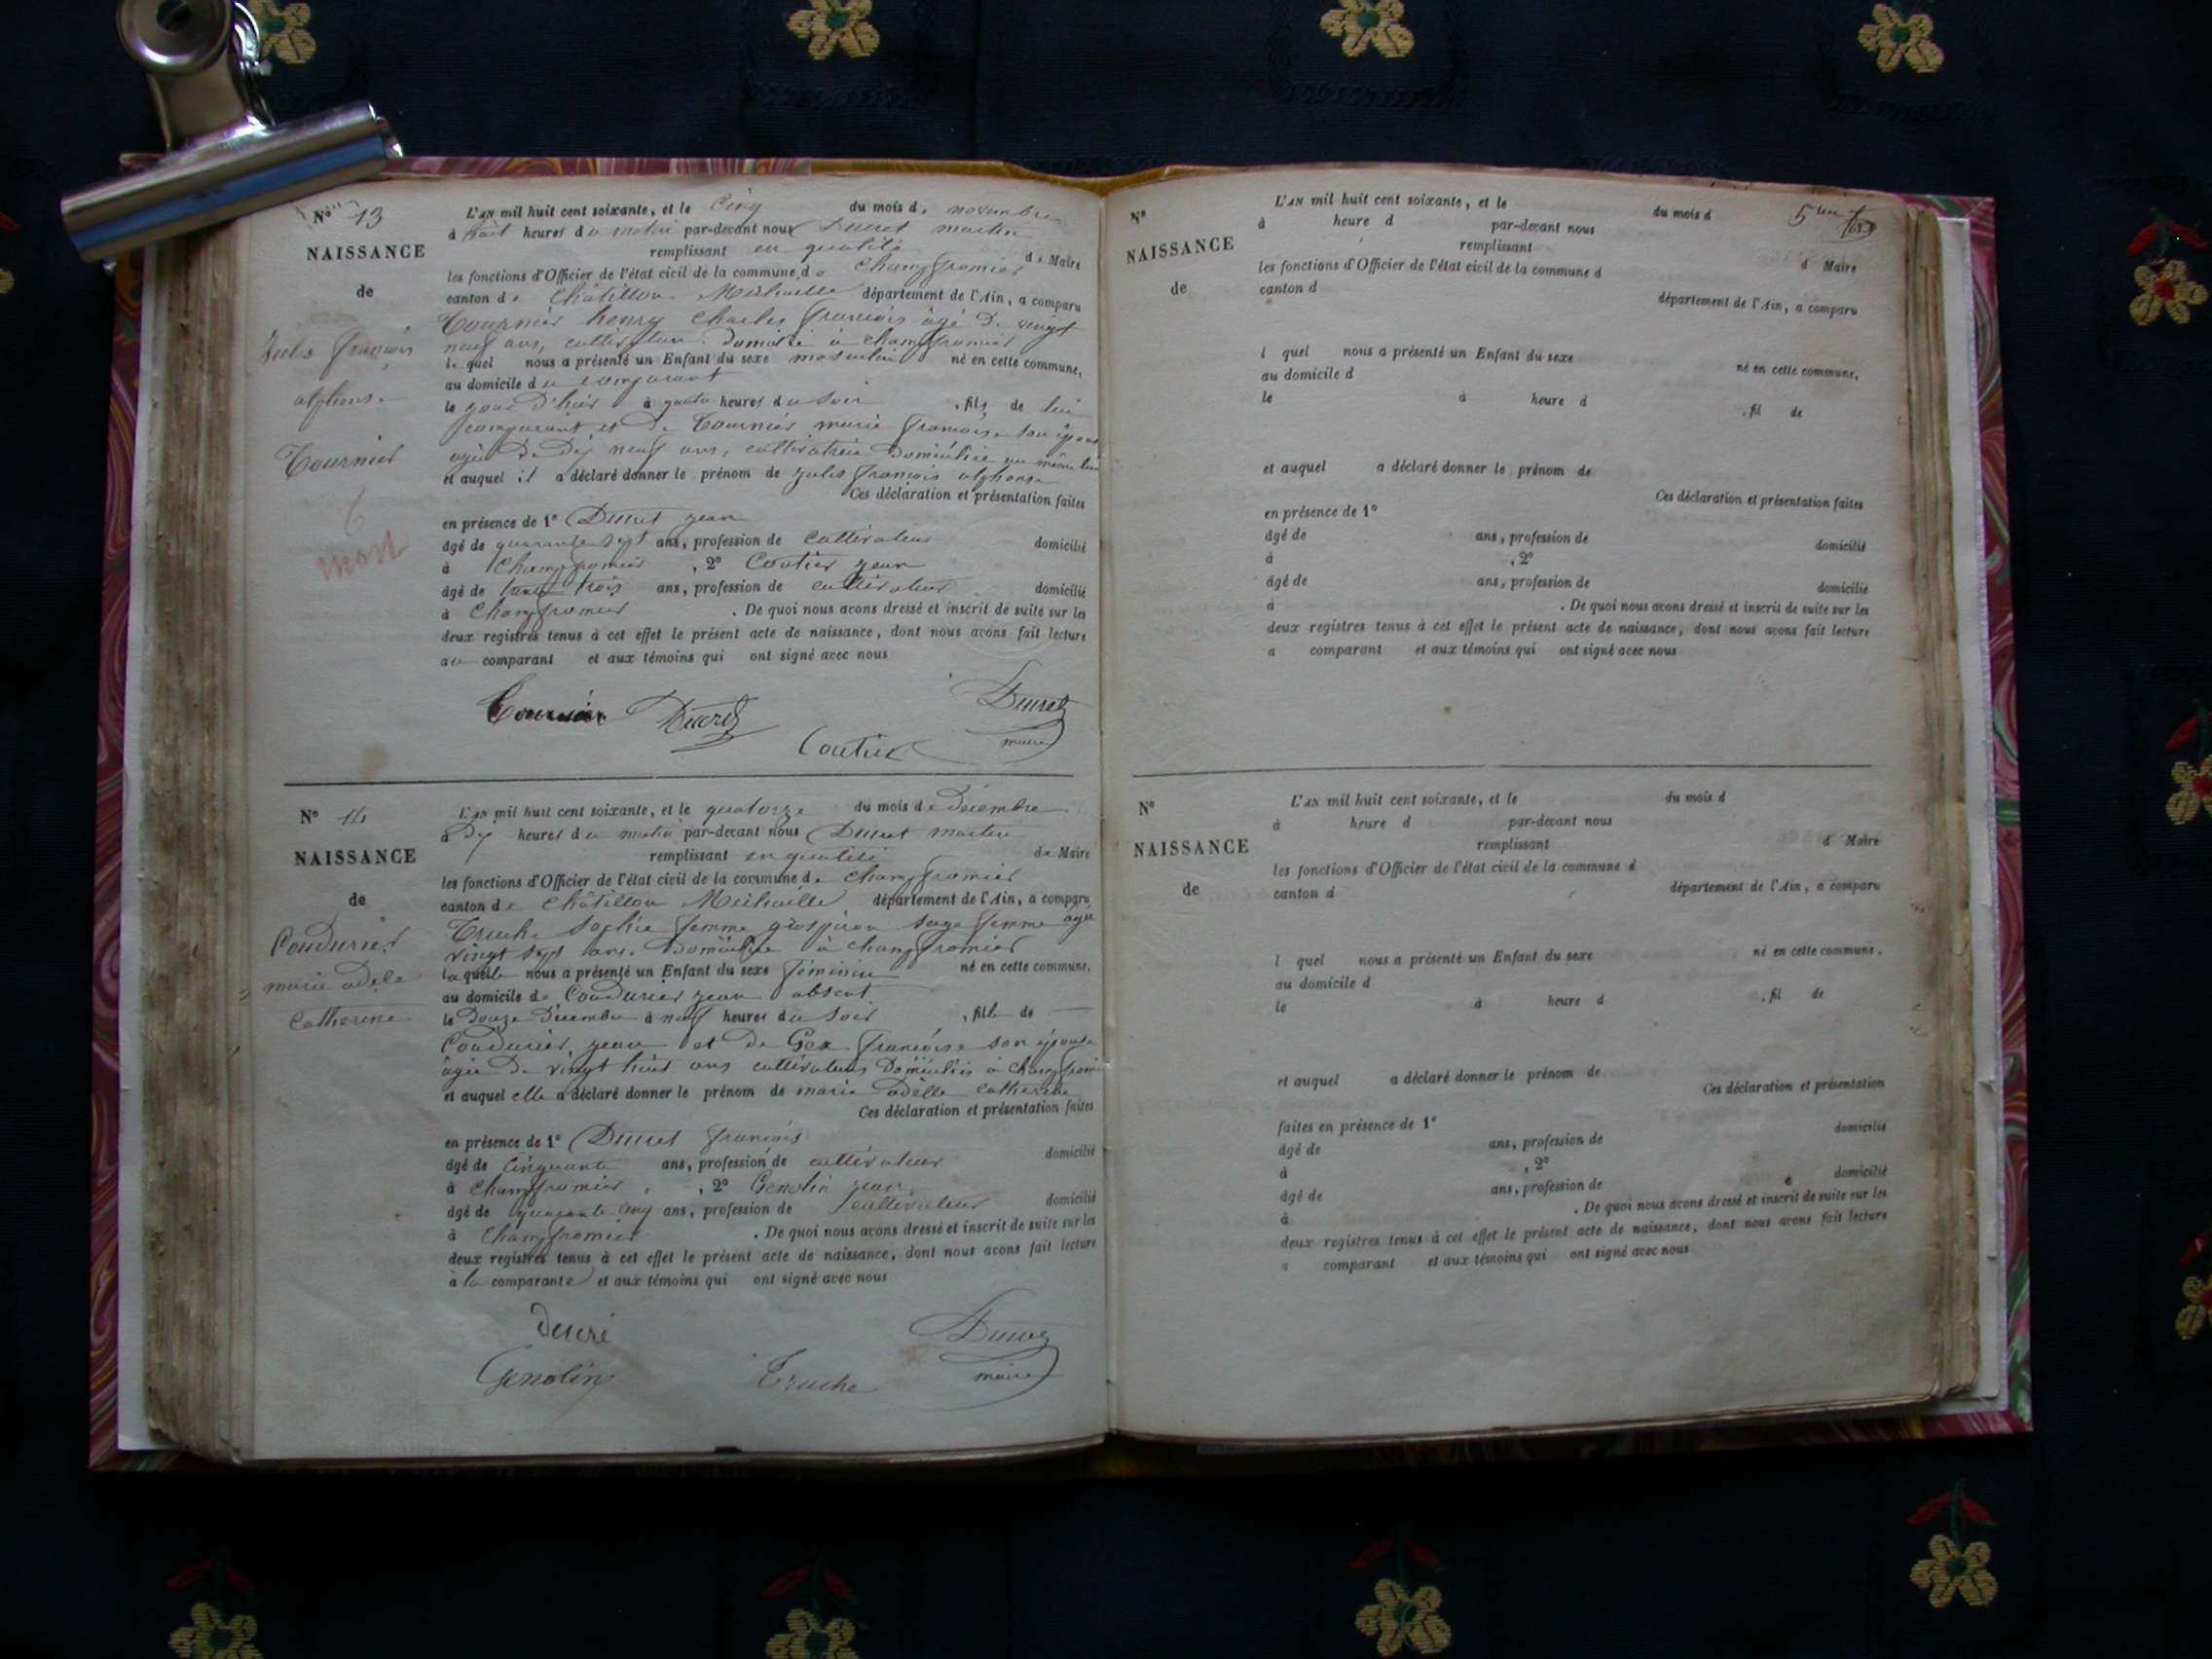 N° 13
NAISSANCE
de
Jules françois
alphonse
Tournier
6
mort
L'AN mil huit cent soixante, et le Cinq du mois de novembre
à huit heures du matin par-devant nous Ducret martin
remplissant en qualité de Maire
les fonctions d'Officier de l'état civil de la commune de Champfromier
canton de Châtillon Michaille département de l'Ain, a comparu
Tournier henry Charles françois âgé de vingt
neuf ans, cultivateur domicilié à champfromier
lequel nous a présenté un Enfant du sexe masculin né en cette commune,
au domicile du comparant
le jour d'hier à quatre heures du soir , fils de lui
comparant et de Tournier marie françoise son épouse
agée de dix neuf ans, cultivatrice domiciliée au même lieu
et auquel il a déclaré donner le prénom de jules françois alphonse
Ces déclaration et présentation faites
en présence de 1° Ducret jean
âgé de quarante sept ans, profession de cultivateur domicilié
à Champfromier , 2° Coutier jean
âgé de trois ans, profession de cultivateur domicilié
à Champfromier . De quoi nous avons dressé et inscrit de suite sur les
deux registres tenus à cet effet le présent acte de naissance, dont nous avons fait lecture
au comparant et aux témoins qui ont signé avec nous
Tournier Ducret Ducret
Coutier maire
N° 14
NAISSANCE
de
Coudurier
marie adèle
Catherine
L'AN mil huit cent soixante, et le quatorze du mois de décembre
à dix heures du matin par-devant nous Ducret martin
remplissant en qualité de Maire
les fonctions d'Officier de l'état civil de la commune de Champfromier
canton de Châtillon Michaille département de l'Ain, a comparu
Truche Sophie femme grospiron sage femme agée
vingt sept ans domiciliée à champfromier
laquelle nous a présenté un Enfant du sexe féminin né en cette commune,
au domicile de Coudurier jean absent
le douze Décembre à neuf heures du soir , fille de
Coudurier jean et de Gex françoise son épouse
agée de vingt huit ans cultivateurs domiciliés à champfromier
et auquel elle a déclaré donner le prénom de marie adèlle catherine
Ces déclaration et présentation faites
en présence de 1° Ducret françois
âgé de cinquante ans, profession de cultivateur domicilié
à champfromier , 2° Genolin jean
âgé de quarante cinq ans, profession de cultivateur domicilié
à Champfromier . De quoi nous avons dressé et inscrit de suite sur les
deux registres tenus à cet effet le présent acte de naissance, dont nous avons fait lecture
à la comparante et aux témoins qui ont signé avec nous
Ducré Ducret
Genolin Truche maire
5me
N°
NAISSANCE
de
L'AN mil huit cent soixante, et le du mois d
à heure d par-devant nous
remplissant d Maire
les fonctions d'Officier de l'état civil de la commune d
canton d département de l'Ain, a comparu
l quel nous a présenté un Enfant du sexe né en cette commune,
au domicile d
le à heure d , fil de
et auquel a déclaré donner le prénom de
Ces déclaration et présentation faites
en présence de 1°
âgé de ans, profession de domicilié
à , 2°
âgé de ans, profession de domicilié
à . De quoi nous avons dressé et inscrit de suite sur les
deux registres tenus à cet effet le présent acte de naissance, dont nous avons fait lecture
a comparant et aux témoins qui ont signé avec nous
N°
NAISSANCE
de
L'AN mil huit cent soixante, et le du mois d
à heure d par-devant nous
remplissant d Maire
les fonctions d'Officier de l'état civil de la commune d
canton d département de l'Ain, a comparu
l quel nous a présenté un Enfant du sexe né en cette commune,
au domicile d
le à heure d , fil de
et auquel a déclaré donner le prénom de
Ces déclaration et présentation
faites en présence de 1°
âgé de ans, profession de domicilié
à , 2°
âgé de ans, profession de domicilié
à . De quoi nous avons dressé et inscrit de suite sur les
deux registres tenus à cet effet le présent acte de naissance, dont nous avons fait lecture
a comparant et aux témoins qui ont signé avec nous